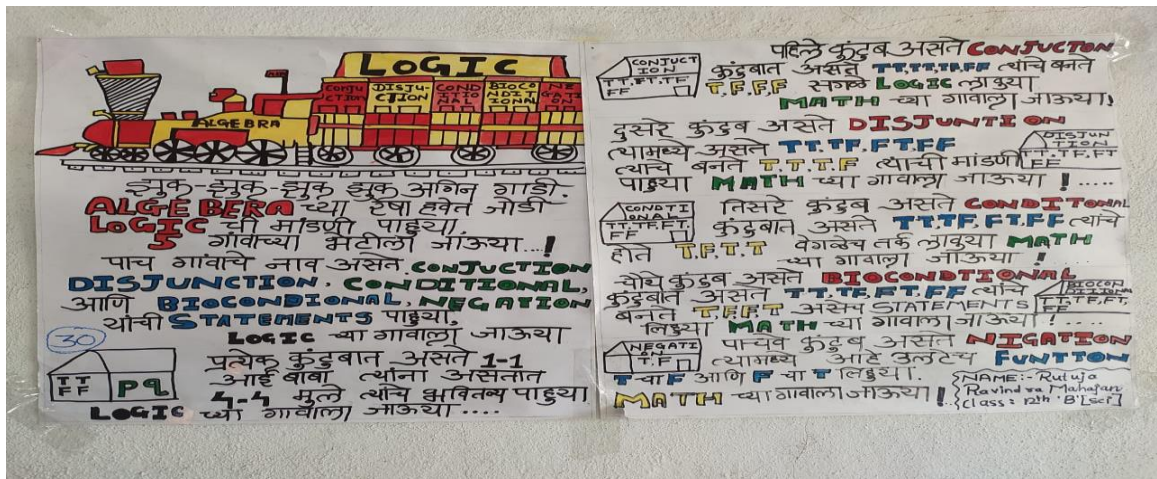 LOGIC
CONJU
CTION
DISJU-
CTION
COND
ITIO
NAL
BIOCO
NDIT
IONAL
NE
GATI
ON
ALGEBRA
झुक-झुक-झुक झुक अगिन गाडी.
ALGEBERA च्या रेषा हवेत जोडी
LOGIC ची मांडणी पाहुया.
5 गावांच्या भेटीला जाऊया...!
पाच गावांचे नाव असते CONJUCTION
DISJUNCTION, CONDITIONAL,
आणि BIOCONDIONAL, NEGATION
यांची STATEMENTS पाहुया,
LOGIC च्या गावाला जाऊया
30
TT
FF
pq
प्रत्येक कुंदुबात असते 1-1
आई बाबा त्यांना असतात
4-4 मुले त्यांचे भवितव्य पाहुया
LOGIC च्या गावाला जाऊया....
पहिले कुंदुब असते CONJUCTON
CONJUCT
ION
TT,FT,TF
FF
कुंदुबात असते TT,TT,TF,FF त्यांचे बनते
T,F,F,F सगळे LOGIC लावुया
MATH च्या गावाला जाऊया!
दुसरे कुंदुब असते DISJUNTION
त्यामध्ये असते TT,TF,FT,FF
DISJUN
TION
TT,TF,FT
FF
त्यांचे बनते T,T,T,F त्याची मांडणी
पाहुया MATH च्या गावाला जाऊया !.....
CONDTI
ONAL
TT,TF,FT,
FF
तिसरे कुंदुब असते CONDITONAL
कुंदुबात असते TT,TF,FT,FF त्यांचे
होते T,F,T,T वेगळेच तर्क लावुया MATH
च्या गावाला जाऊया !....
चौथे कुंदुब असते BIOCONDTIONAL
कुंदुबात असते TT,TF,FT,FF त्यांचे
BIOCON
DITIONAL
TT,TF,FT,
FF
बनते T,F,F,T असेच STATEMENTS
लिहुया MATH च्या गावाला जाऊया !.....
NEGATI
ON
T,F
पाचवे कुंदुब असते NIGATION
त्यामध्ये आहे उलटेच FUNTTON
T चा F आणि F चा T लिहुया.
MATH च्या गावाला जाऊया !..
NAME:- Rutuja
Ravindra Mahajan
Class: 12th 'B' [sci]